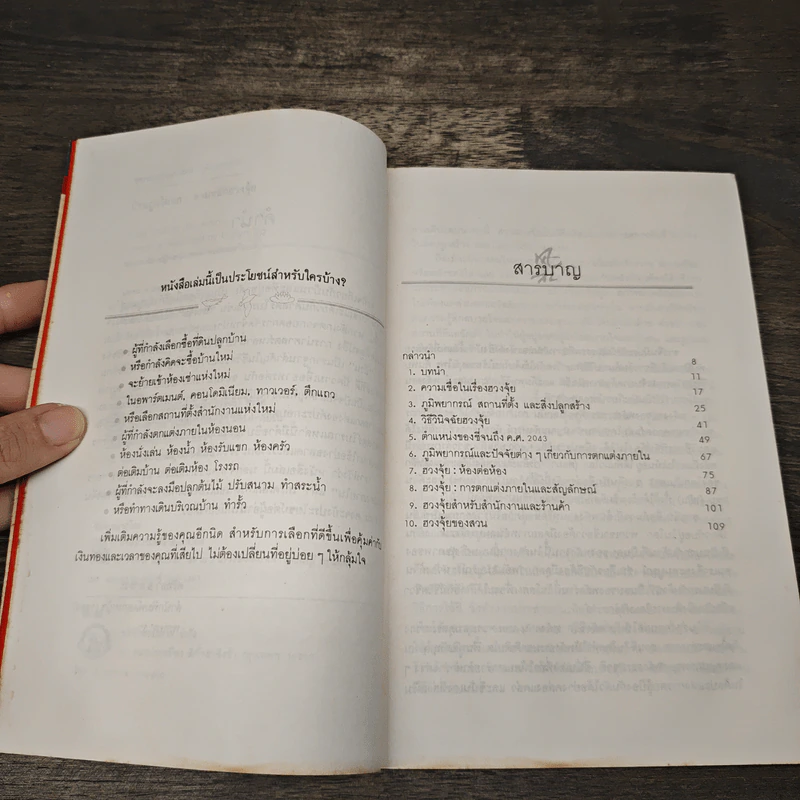 หนังสือเล่มนี้เป็นประโยชน์สำหรับใครบ้าง?
• ผู้ที่กำลังเลือกซื้อที่ดินปลูกบ้าน
• หรือกำลังคิดจะซื้อบ้านใหม่
• จะย้ายเข้าห้องเช่าแห่งใหม่
• ในอพาร์ตเมนต์, คอนโดมิเนียม, ทาวเวอร์, ตึกแถว
• หรือเลือกสถานที่ตั้งสำนักงานแห่งใหม่
• ผู้ที่กำลังตกแต่งภายในห้องนอน
• ห้องนั่งเล่น ห้องน้ำ ห้องรับแขก ห้องครัว
• ต่อเติมบ้าน ต่อเติมห้อง โรงรถ
• ผู้ที่กำลังจะลงมือปลูกต้นไม้ ปรับสนาม ทำสระน้ำ
• หรือทำทางเดินบริเวณบ้าน ทำรั้ว
เพิ่มเติมความรู้ของคุณอีกนิด สำหรับการเลือกที่ดีขึ้นเพื่อคุ้มค่ากับ
เงินทองและเวลาของคุณที่เสียไป ไม่ต้องเปลี่ยนที่อยู่บ่อย ๆ ให้กลุ้มใจ
สารบาญ
กล่าวนำ 8
1. บทนำ 11
2. ความเชื่อในเรื่องฮวงจุ้ย 17
3. ภูมิพยากรณ์ สถานที่ตั้ง และสิ่งปลูกสร้าง 25
4. วิธีวินิจฉัยฮวงจุ้ย 41
5. ตำแหน่งของชี่จนถึง ค.ศ. 2043 49
6. ภูมิพยากรณ์และปัจจัยต่าง ๆ เกี่ยวกับการตกแต่งภายใน 67
7. ฮวงจุ้ย : ห้องต่อห้อง 75
8. ฮวงจุ้ย : การตกแต่งภายในและสัญลักษณ์ 87
9. ฮวงจุ้ยสำหรับสำนักงานและร้านค้า 101
10. ฮวงจุ้ยของสวน 109